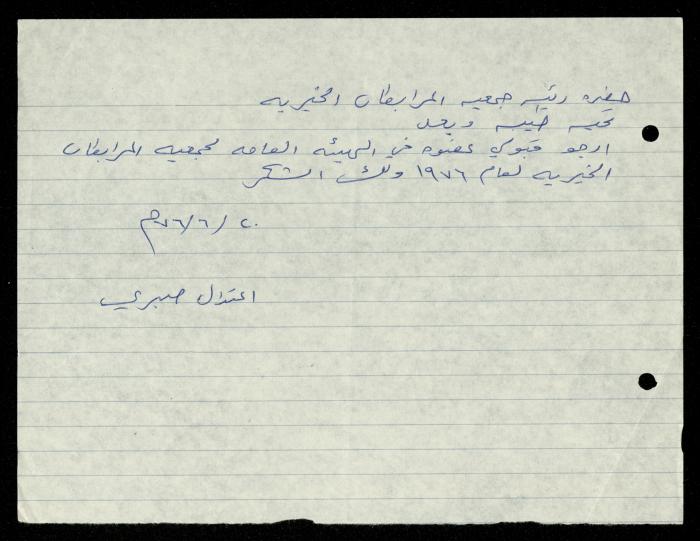 حضره رئيسه جمعيه المرابطات الخيريه
تحيه طيبه وبعد
ارجو قبولي عضوه في الهيئه العامه لجمعيه المرابطات
الخيريه لعام ١٩٧٦ ولك الشكر
٢٠/٦/٧٦م
اعتدال صبري